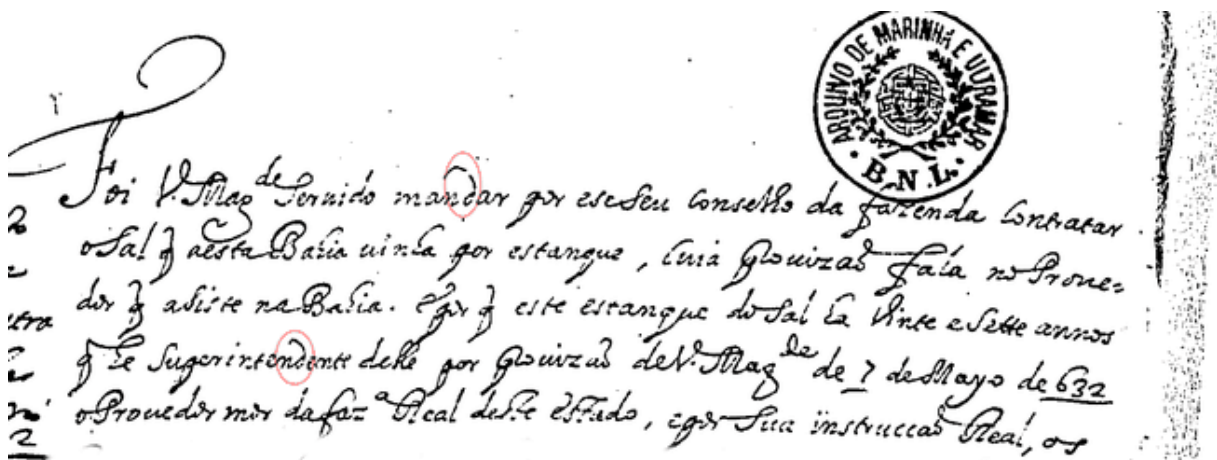 ARQUIVO DE MARINHA E ULTRAMAR
B.N.L.
Foi V. Magde seruido mandar por ese seu Conselho da fazenda Contratar
o Sal q̃ aesta Bahia uinha por estanque, Cuia prouizaõ fala no Proue=
dor q̃ asiste na Bahia. e por q̃ este estanque do Sal ha Vinte e Sette annos
q̃ he Superintendente delle por prouizaõ de V. Magde de 7 de Mayo de 632
o Prouedor mor da fazª Real deste estado, e por Sua instrucçaõ Real, os
tra
2